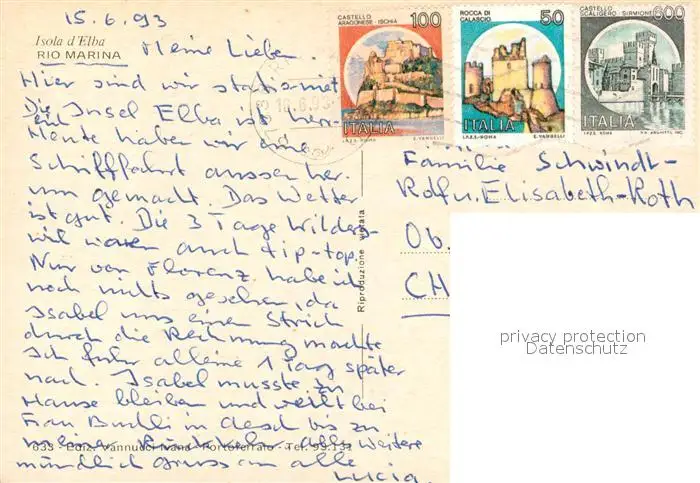 15.6.93
Isola d'Elba
RIO MARINA
Meine Lieben.
Hier sind wir stationiert
Die Insel Elba ist herr-
Heute haben wir eine
Schifffahrt aussen her-
um gemacht. Das Wetter
ist gut. Die 3 Tage Wilders-
wil waren auch tip-top.
Nur von Florenz habe ich
noch nichts gesehen, da
Isabel uns einen Strich
durch die Rechnung machte
Ich fuhr alleine 1 Tag später
nach. Isabel musste zu
Hause bleiben und weilt bei
Frau in bis zu
meiner alles weitere
mündlich Gruss an alle
Lucia.
633 - Ediz. Vannucci Ivana - Portoferraio - Tel. 93.131
Riproduzione vietata
CASTELLO ARAGONESE - ISCHIA
100
ITALIA
I.P.Z.S. - ROMA
E. VANGELLI
ROCCA DI CALASCIO
50
ITALIA
I.P.Z.S. - ROMA
E. VANGELLI
CASTELLO SCALIGERO - SIRMIONE
600
ITALIA
I.P.Z.S. ROMA
Familie Schwindt-
Rolf u. Elisabeth-Roth
Ob.
CH
privacy protection
Datenschutz